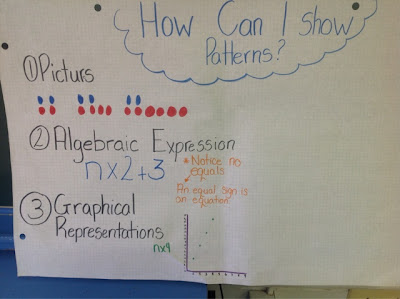 How Can I show
Patterns?
① Picturs
② Algebraic Expression
n x 2 + 3
* Notice no
equals
An equal sign is
an equation
③ Graphical
Representations
n x 4